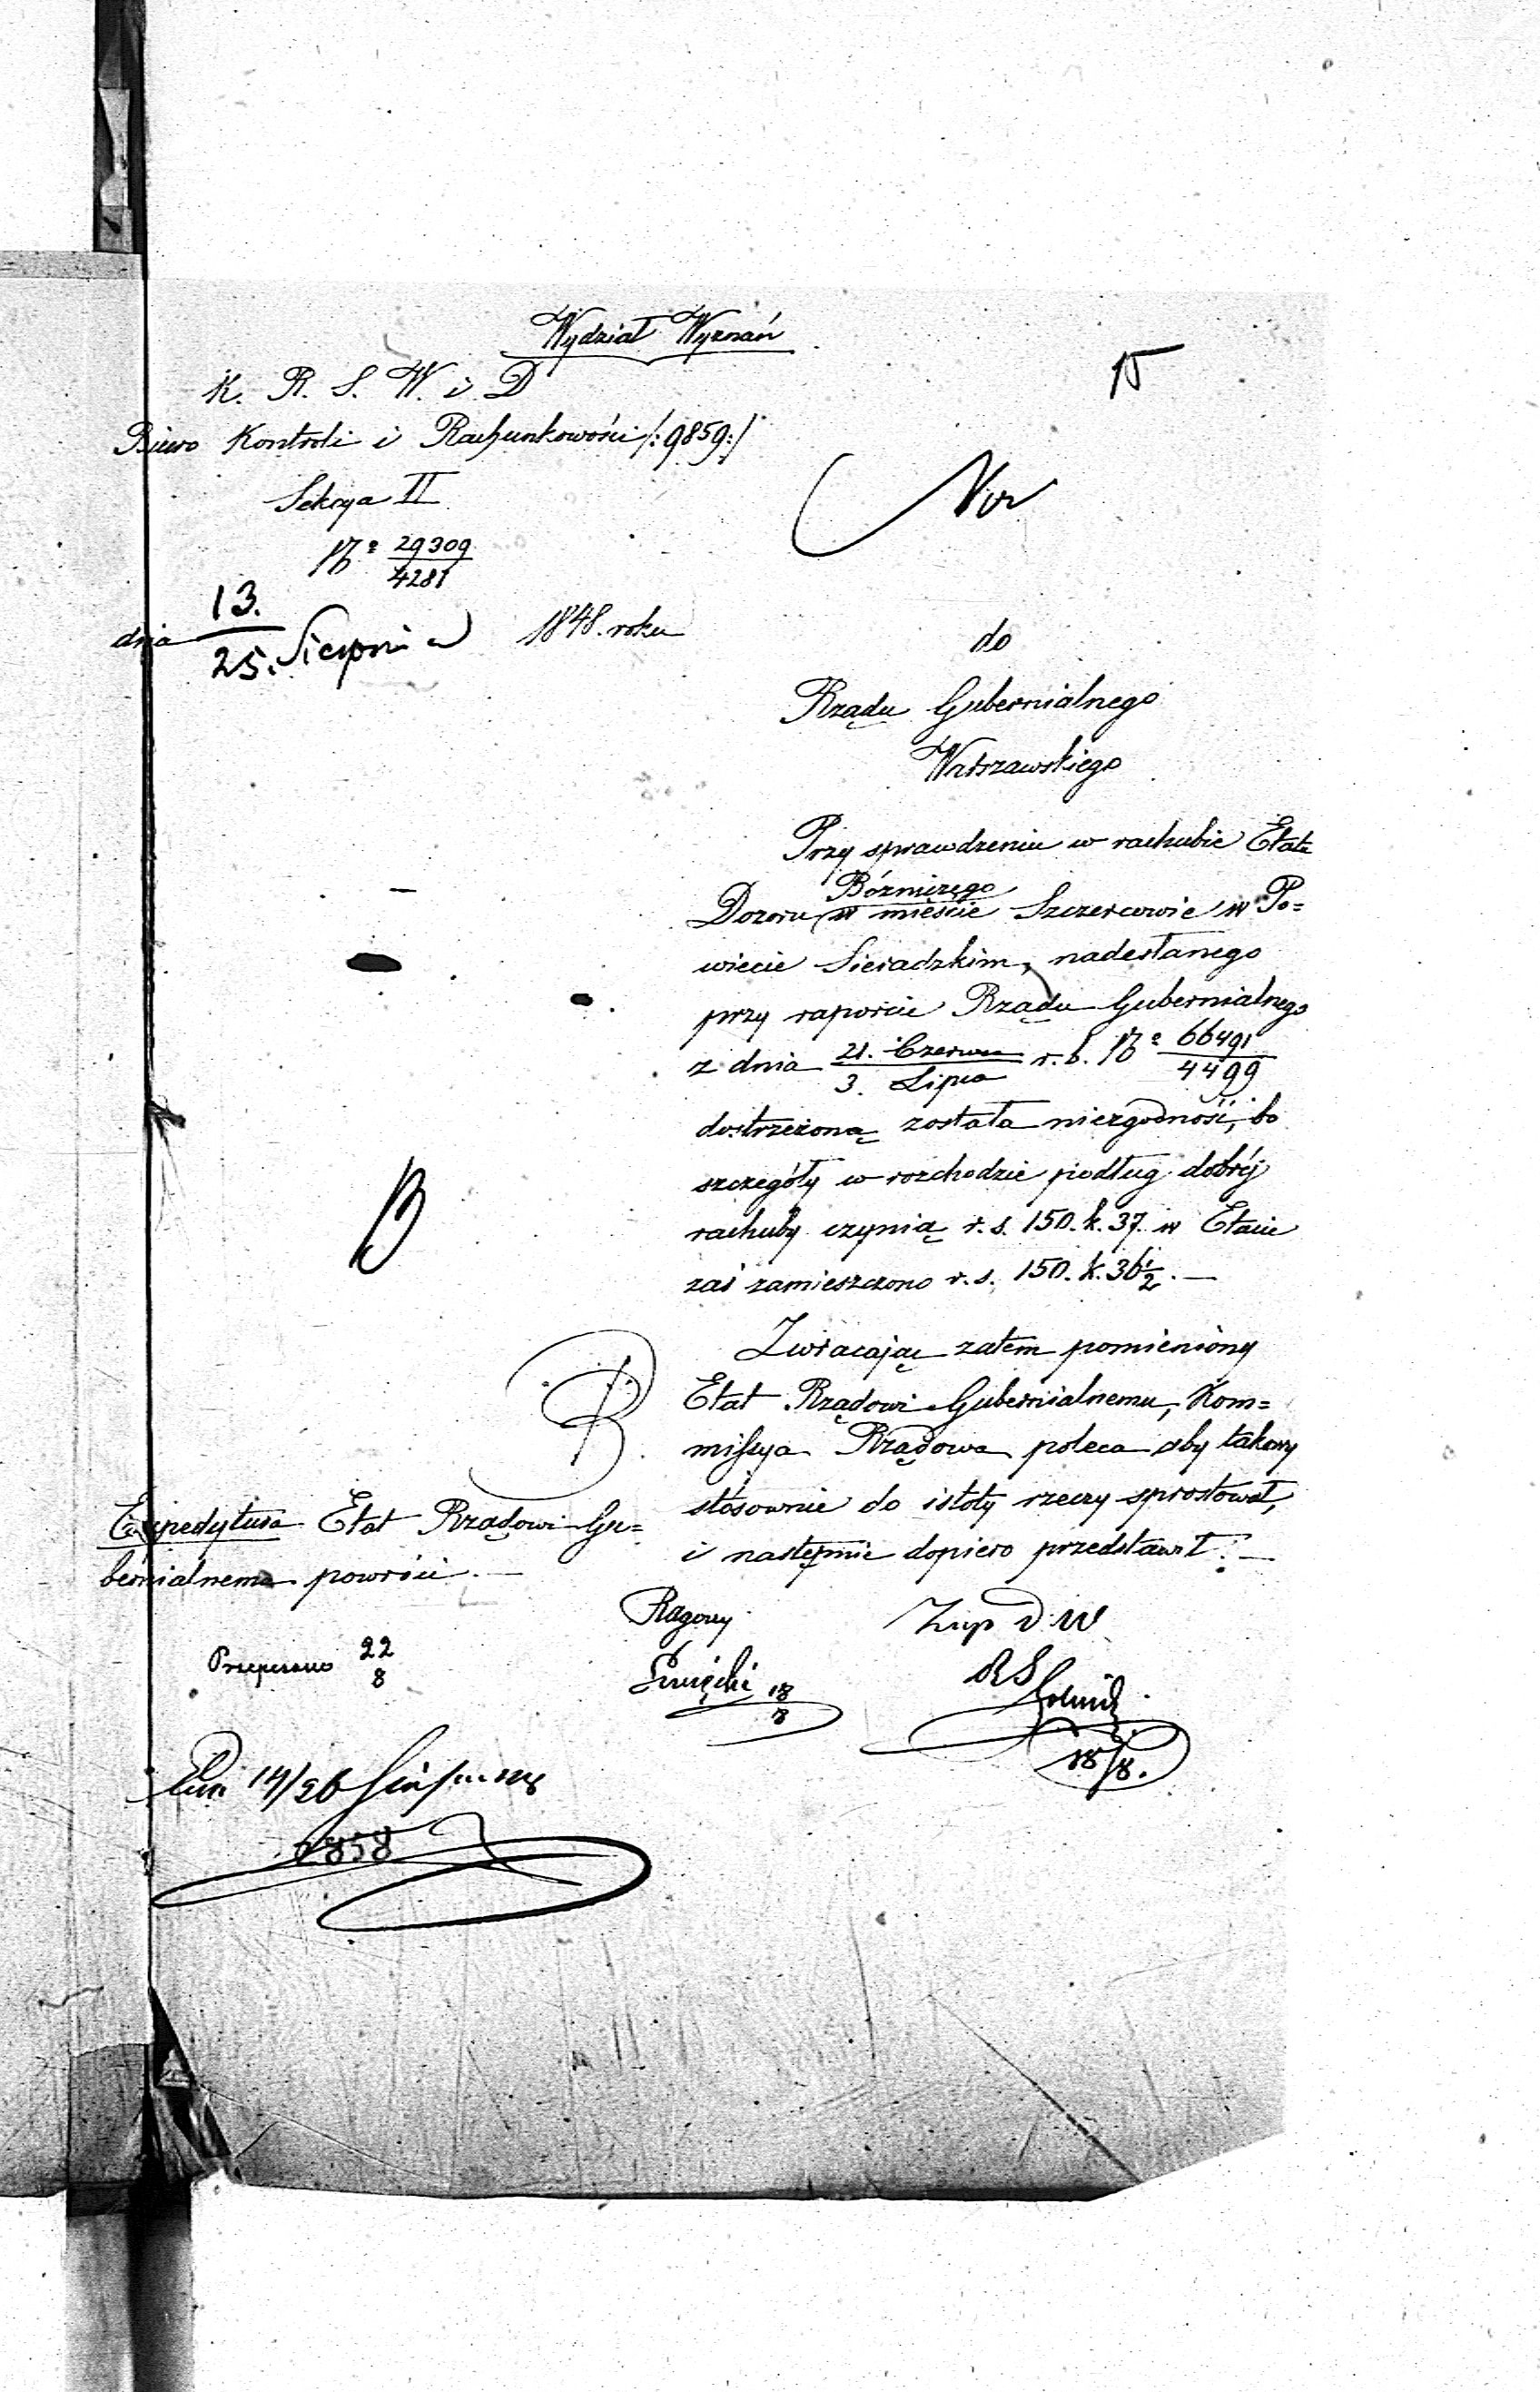 Wydział Wyznań
15
K. R. S. W. i D
Biuro Kontroli i Rachunkowości /:9859:/
Sekcya II
№ 29309/4281
dnia 13./25. Sierpnia 1848. roku
do
Rządu Gubernialnego
Warszawskiego
Przy sprawdzeniu w rachubie Etatu
Bóźniczego
Dozoru w mieście Szczercowie w Po=
wiecie Sieradzkim, nadesłanego
przy raporcie Rządu Gubernialnego
z dnia 21. Czerwca/3. Lipca r. b. № 66491/4499
dostrzeżoną została niezgodność, bo
szczegóły w rozchodzie podług dobréj
rachuby czynią r. s. 150. k. 37. w Etacie
zaś zamieszczono r. s. 150. k. 36½. —
Zwracając zatem pomieniony
Etat Rządowi Gubernialnemu, Kom=
missya Rządowa poleca aby takowy
stósownie do istoty rzeczy sprostował,
i następnie dopiero przedstawił. —
Expedytura Etat Rządowi Gu=
bernialnemu powróci. —
Przepisano 22/8
18/8
18/8.
14/26
2858